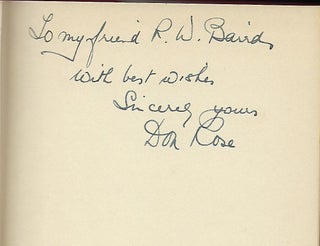 To my friend R. W. Baird
with best wishes
Sincerely yours
Don Rose